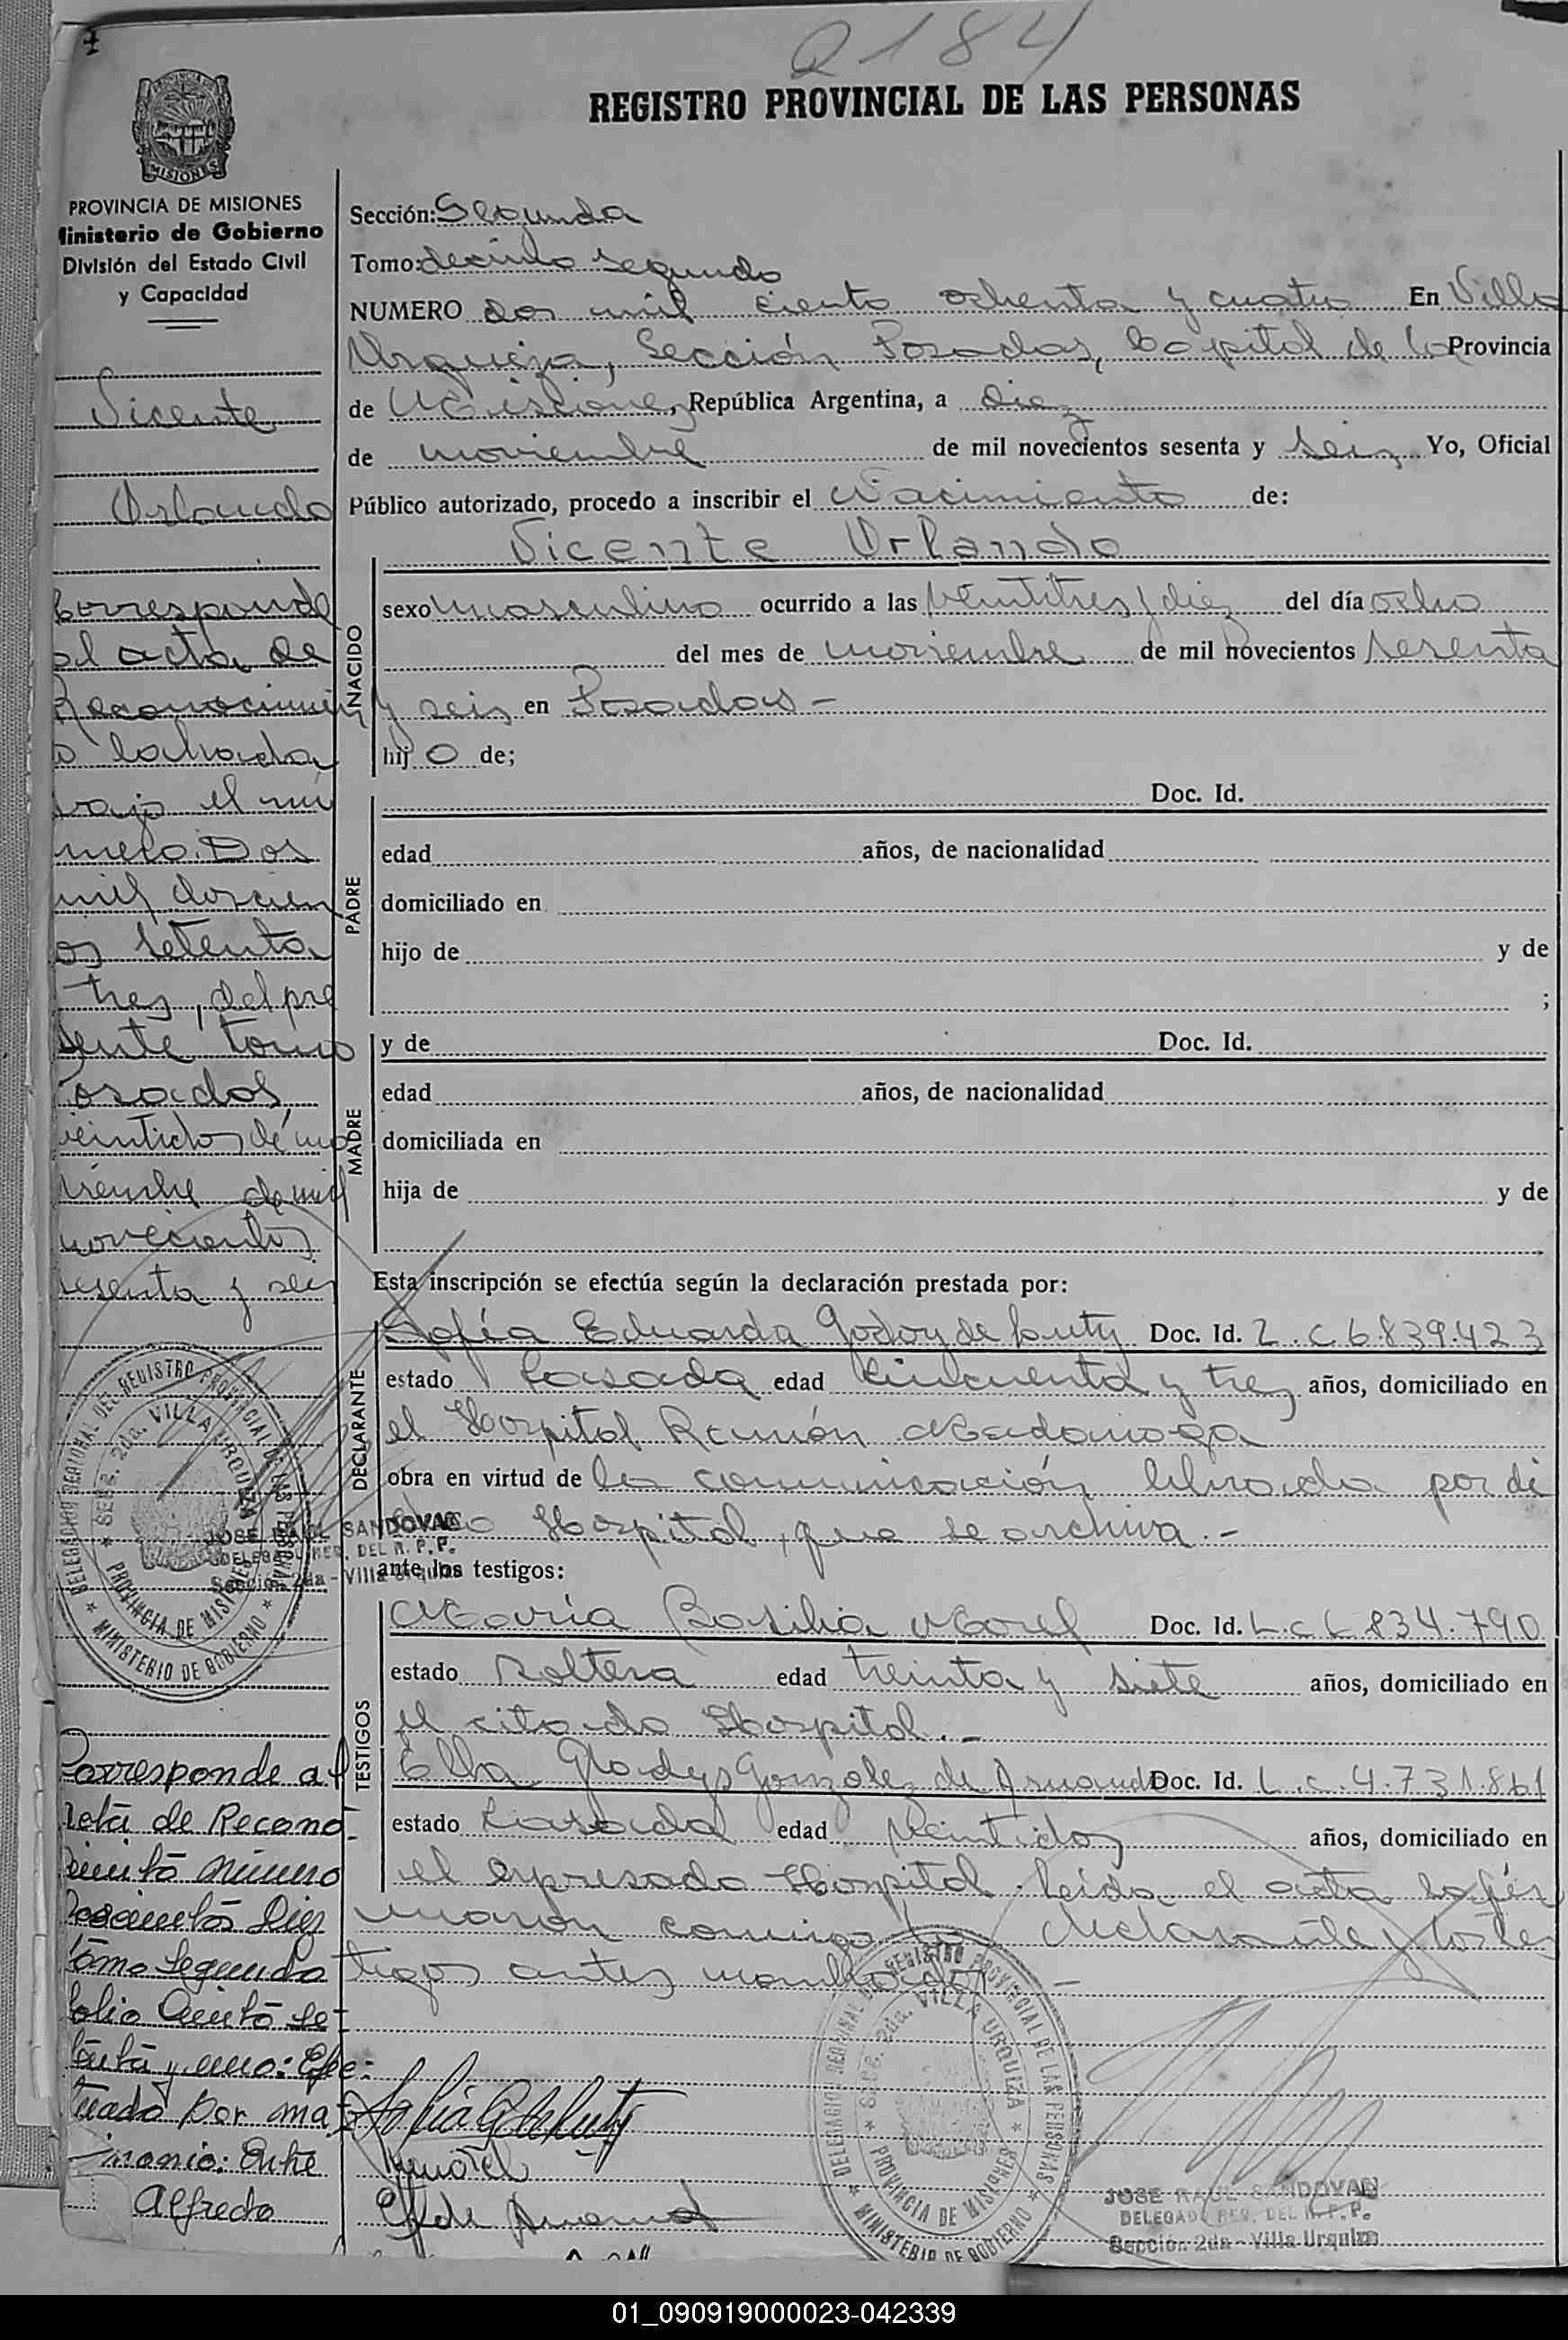 2184
REGISTRO PROVINCIAL DE LAS PERSONAS
MISIONES
PROVINCIA DE MISIONES
Ministerio de Gobierno
División del Estado Civil
y Capacidad
Vicente
Orlando
Corresponde
al acta de
Reconocimien
o labrada
vajo el nú
mero. Dos
mil dorcien
os setenta
tres, del pre
sente tomo
Posadas,
veintidos de no
viembre de mil
novecientos
sesenta y seis
Corresponde al
Acta de Recono-
cimiento número
Doscientos Diez
tomo Segundo
folio Ciento se-
tenta y uno: Efec-
tuado por ma-
trimonio: Entre
Alfredo
Sección: Segunda
Tomo: decimo segundo
NUMERO dos mil ciento ochenta y cuatro En Villa
Urquiza, Sección Posadas, Capital de la Provincia
de Misiones, República Argentina, a diez
de noviembre de mil novecientos sesenta y seis Yo, Oficial
Público autorizado, procedo a inscribir el Nacimiento de:
Vicente Orlando
NACIDO
sexo masculino ocurrido a las veintitres y diez del día ocho
del mes de noviembre de mil novecientos sesenta
y seis en Posadas -
hijo de;
PADRE
Doc. Id.
edad años, de nacionalidad
domiciliado en
hijo de y de
;
MADRE
y de Doc. Id.
edad años, de nacionalidad
domiciliada en
hija de y de
Esta inscripción se efectúa según la declaración prestada por:
DECLARANTE
Sofía Eduarda Godoy de Doc. Id. L.C 6.839.423
estado Casada edad Cincuenta y tres años, domiciliado en
el Hospital Ramón Madariaga
obra en virtud de la comunicación librada por di
cho Hospital, que se archiva.-
ante los testigos:
TESTIGOS
María Basilia Morel Doc. Id. L.C 6.834.790
estado soltera edad treinta y siete años, domiciliado en
el citado Hospital.-
Elba Gladys González de Doc. Id. L.C. 4.731.861
estado Casada edad Veintidos años, domiciliado en
el expresado Hospital. Leida el acta la fir
maron conmigo la declarante y los tes
tigos antes nombrados -
DELEGACION REGIONAL DEL REGISTRO PROVINCIAL DE LAS PERSONAS
SECC. 2da. VILLA URQUIZA
PROVINCIA DE MISIONES
MINISTERIO DE GOBIERNO
JOSE RAUL SANDOVAL
DELEGADO REG. DEL R. P. P.
Sección 2da - Villa Urquiza
DELEGACION REGIONAL DEL REGISTRO PROVINCIAL DE LAS PERSONAS
SECC. 2da. VILLA URQUIZA
PROVINCIA DE MISIONES
MINISTERIO DE GOBIERNO
JOSE RAUL SANDOVAL
DELEGADO REG. DEL R. P. P.
Sección 2da - Villa Urquiza
01_090919000023-042339